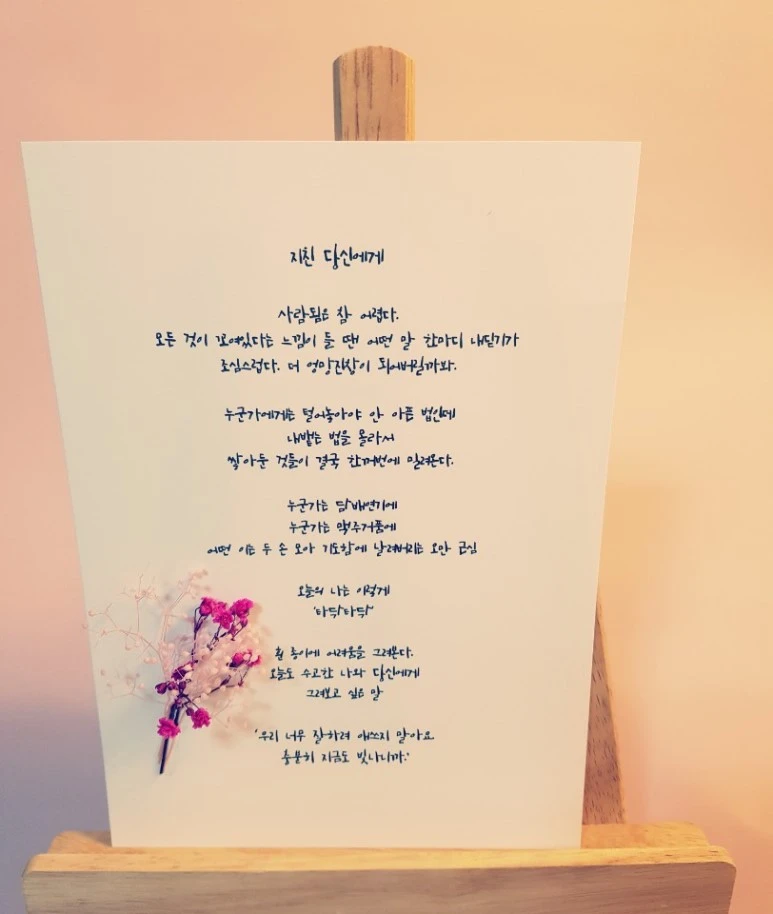 지친 당신에게
사람됨은 참 어렵다.
모든 것이 꼬여있다는 느낌이 들 땐 어떤 말 한마디 내딛기가
조심스럽다. 더 엉망진창이 되어버릴까봐.
누군가에게는 털어놓아야 안 아픈 법인데
내뱉는 법을 몰라서
쌓아둔 것들이 결국 한꺼번에 밀려온다.
누군가는 담배연기에
누군가는 맥주거품에
어떤 이는 두 손 모아 기도함에 날려버리는 오만 근심
오늘의 나는 이렇게
'타닥타닥'
흰 종이에 어려움을 그려본다.
오늘도 수고한 나와 당신에게
그려보고 싶은 말
'우리 너무 잘하려 애쓰지 말아요
충분히 지금도 빛나니까.'